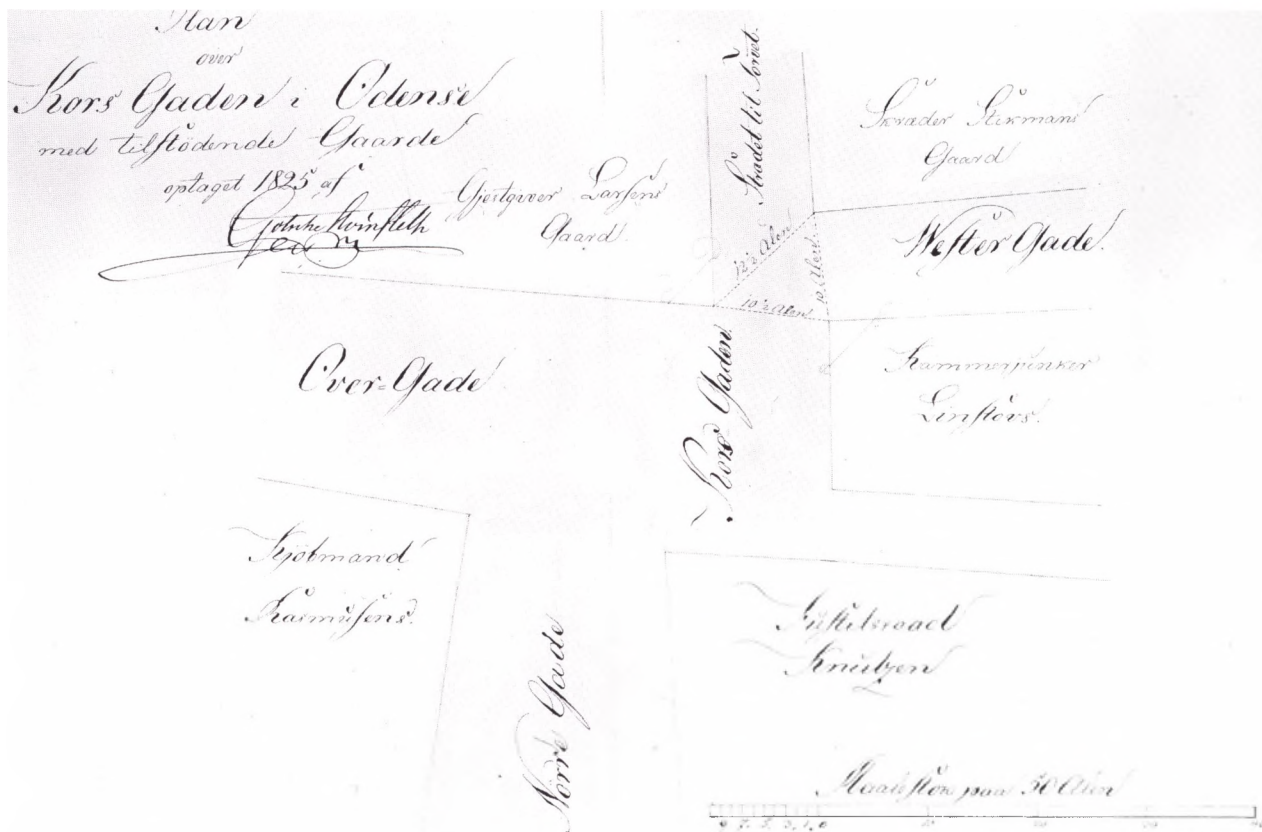 Plan
over
Kors Gaden i Odense
med tilstödende Gaarde
optaget 1825 af
Gjestgiver Larsens
Gaard.
Strædet til Torvet.
Skræder Stikmans
Gaard
Wester Gade.
12½ Alen
10 Alen
10½ Alen
Over-Gade
Kors Gaden
Kammerjunker
Linstövs.
Kjöbmand
Rasmusens.
Nörre Gade
Justitsraad
Knutzen
Maalestok paa 50 Alen